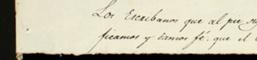 Los Escribanos que al pie
ficamos y damos fé, que el